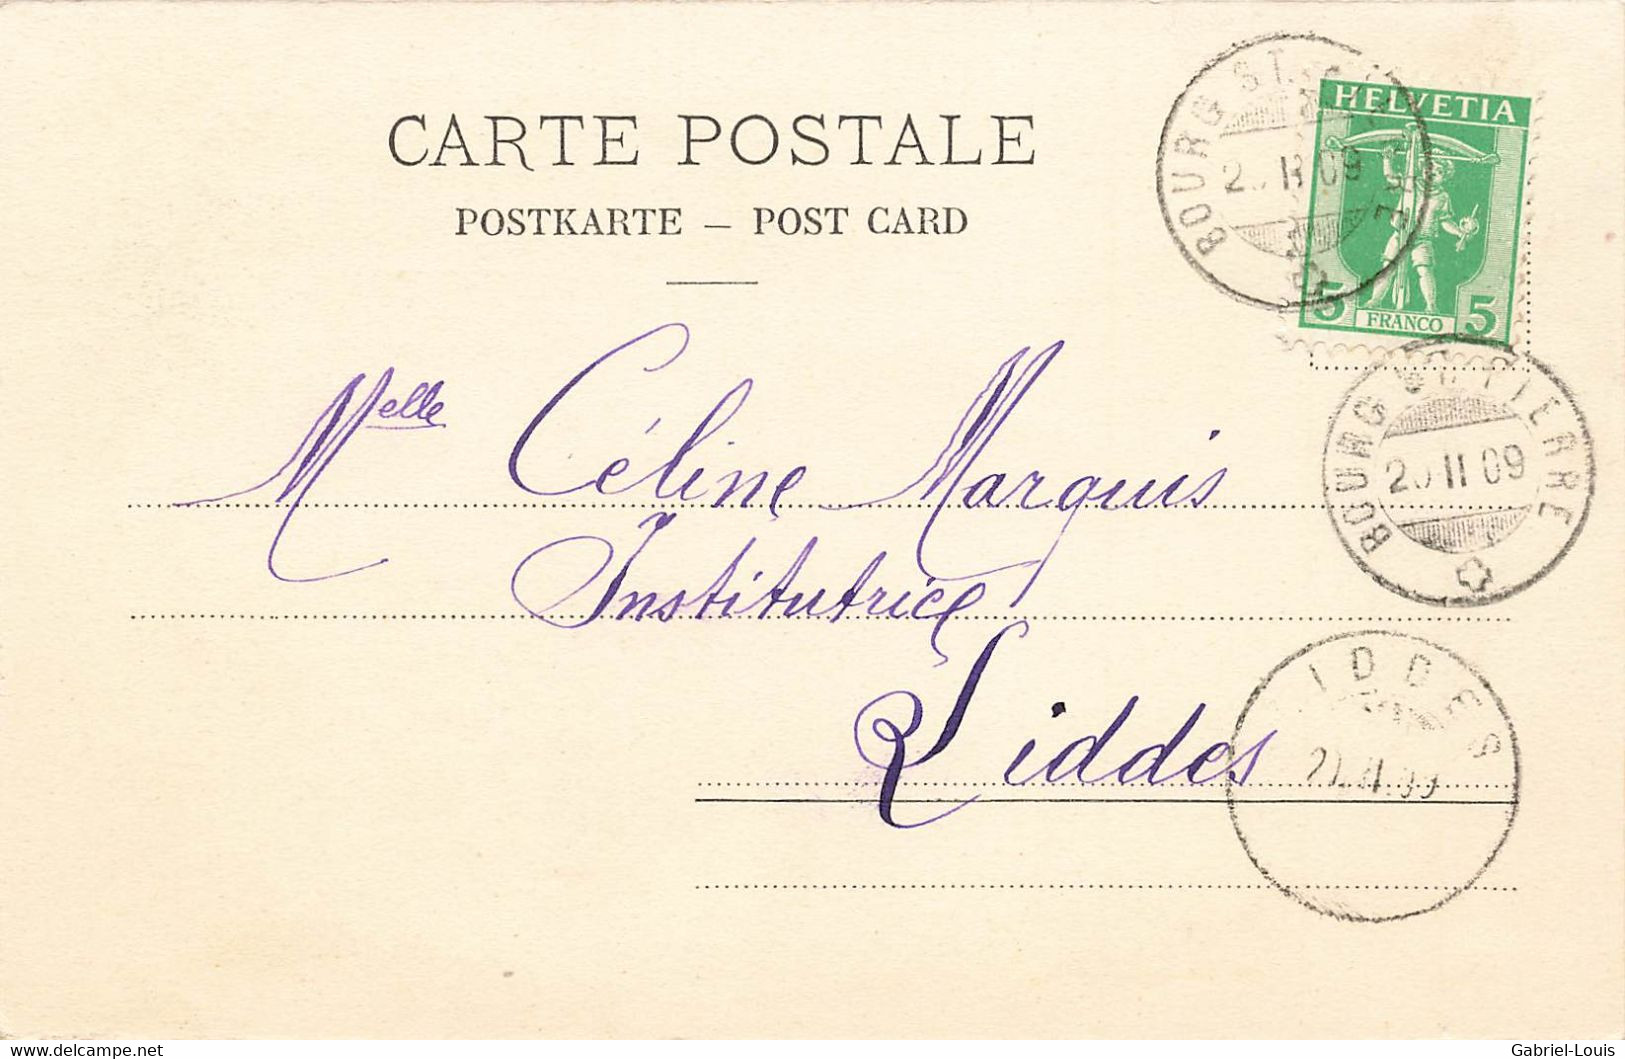 CARTE POSTALE
POSTKARTE – POST CARD
HELVETIA
5 FRANCO 5
BOURG ST. PIERRE
II 09
BOURG ST. PIERRE
II 09
Melle Céline Marquis
Institutrice
Liddes
LIDDES
II.09
www.delcampe.net
Gabriel-Louis